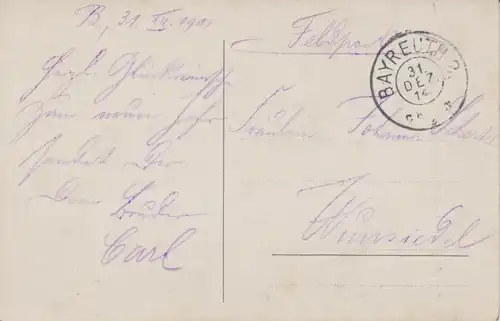 B, 31. XII. 191
Feldpost
BAYREUTH 2.
31
DEZ
14
Herzl. Glückwünsche
zum neuen Jahr
sendet Dir
Dein Bruder
Carl
Fräulein Johanna
Wunsiedel